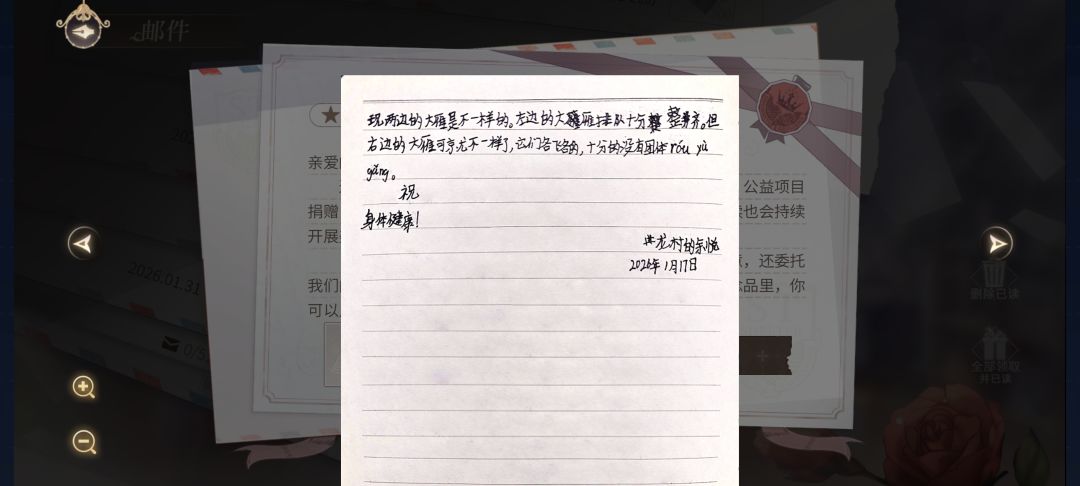 邮件
现两边的大雁是不一样的。左边的大雁排队十分整齐。但
右边的大雁可就不一样了,它们各飞各的,十分的没有团体 róu yù
gǎng。
祝
身体健康!
村的余悦
2026年1月17日
亲爱
公益项目
捐赠
也会持续
开展
,还委托
我们
品里,你
可以
2026.01.31
0/5
删除已读
全部领取
并已读